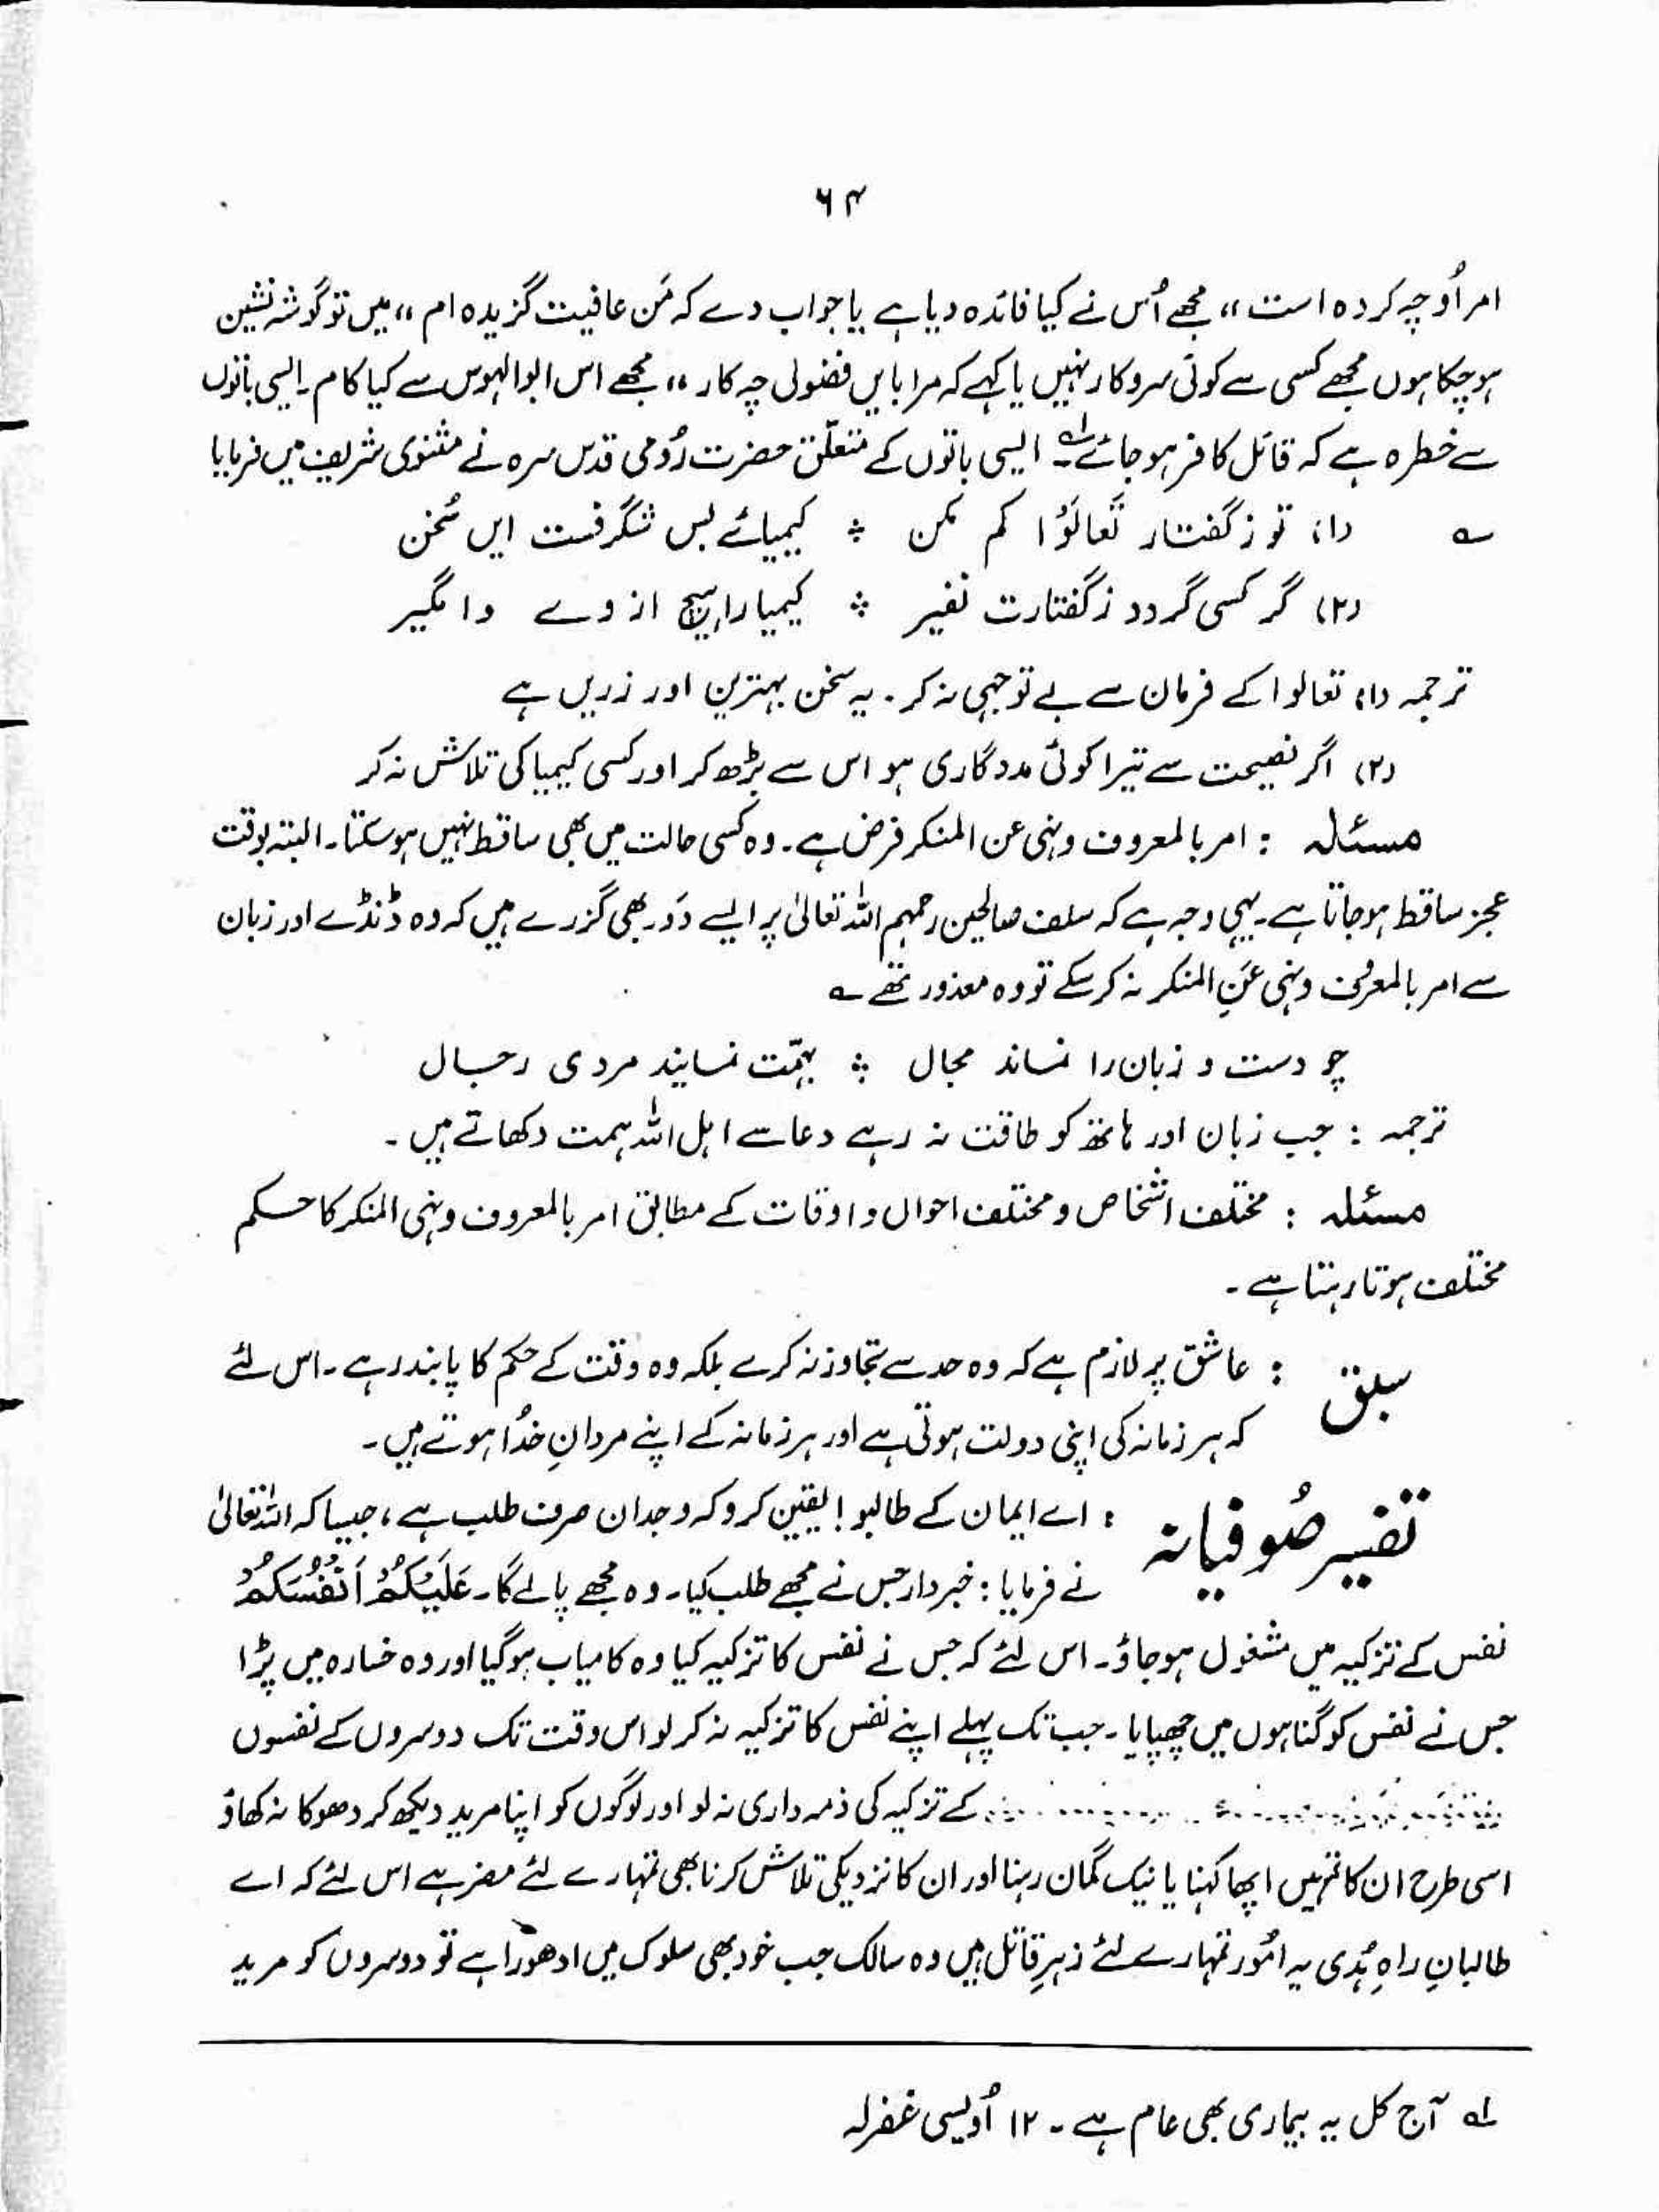 ۶۴
امر اُو چہ کردہ است ،، مجھے اُس نے کیا فائدہ دیا ہے یا جواب دے کہ مَن عافیت گزیدہ ام ،، میں تو گوشہ نشین
ہو چکا ہوں مجھے کسی سے کوئی سروکار نہیں یا کہے کہ مرا بایں فضولی چہ کار ،، مجھے اس ابوالہوس سے کیا کام۔ ایسی باتوں
سے خطرہ ہے کہ قائل کافر ہو جائے۔ لہ ایسی باتوں کے متعلّق حضرت رُومی قدس سرہ نے مثنوی شریف میں فرمایا
؎ (۱) تو ز گفتار تَعَالَوْا کم مکن ؞ کیمیائے بس شگرفست ایں سُخن
(۲) گر کسی گردد ز گفتارت نفیر ؞ کیمیا را ہیچ از وے وا مگیر
ترجمہ (۱) تعالوا کے فرمان سے بے توجہی نہ کر۔ یہ سخن بہترین اور زریں ہے
(۲) اگر نصیحت سے تیرا کوئی مددگاری ہو اس سے بڑھ کر اور کسی کیمیا کی تلاش نہ کر
مسئلہ : امر بالمعروف ونہی عن المنکر فرض ہے۔ وہ کسی حالت میں بھی ساقط نہیں ہو سکتا۔ البتہ بوقت
عجز ساقط ہو جاتا ہے۔ یہی وجہ ہے کہ سلف صالحین رحمہم اللہ تعالیٰ پر ایسے دَور بھی گزرے ہیں کہ وہ ڈنڈے اور زبان
سے امر بالمعرف ونہی عَنِ المنکر نہ کر سکے تو وہ معذور تھے ؎
چو دست و زبان را نماند مجال ؞ بہمّت نمایند مردی رجال
ترجمہ : جب زبان اور ہاتھ کو طاقت نہ رہے دعا سے اہل اللہ ہمت دکھاتے ہیں۔
مسئلہ : مختلف اشخاص و مختلف احوال و اوقات کے مطابق امر بالمعروف ونہی المنکر کا حکم
مختلف ہوتا رہتا ہے۔
سبق : عاشق پر لازم ہے کہ وہ حد سے تجاوز نہ کرے بلکہ وہ وقت کے حکم کا پابند رہے۔ اس لئے
کہ ہر زمانہ کی اپنی دولت ہوتی ہے اور ہر زمانہ کے اپنے مردانِ خدُا ہوتے ہیں۔
تفسیر صُوفیانہ : اے ایمان کے طالبو! یقین کرو کہ وجدان صرف طلب ہے، جیسا کہ اللہ تعالیٰ
نے فرمایا : خبردار جس نے مجھے طلب کیا۔ وہ مجھے پالے گا۔ عَلَیْکُمْ اَنْفُسَکُمْ
نفس کے تزکیہ میں مشغول ہو جاؤ۔ اس لئے کہ جس نے نفس کا تزکیہ کیا وہ کامیاب ہو گیا اور وہ خسارہ میں پڑا
جس نے نفس کو گناہوں میں چھپایا۔ جب تک پہلے اپنے نفس کا تزکیہ نہ کر لو اس وقت تک دوسروں کے نفسوں
کے تزکیہ کی ذمہ داری نہ لو اور لوگوں کو اپنا مرید دیکھ کر دھوکا نہ کھاؤ
اسی طرح ان کا تمہیں اچھا کہنا یا نیک گمان رہنا اور ان کا نزدیکی تلاش کرنا بھی تمہارے لئے مضر ہے اس لئے کہ اے
طالبانِ راہِ ہُدی یہ امُور تمہارے لئے زہرِ قاتل ہیں وہ سالک جب خود بھی سلوک میں ادھورا ہے تو دوسروں کو مرید
لہ آج کل یہ بیماری بھی عام ہے۔ ۱۲ اُویسی غفرلہ